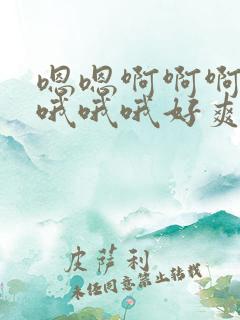 嗯嗯啊啊啊
哦哦哦好爽
皮萨利
未经同意禁止转载